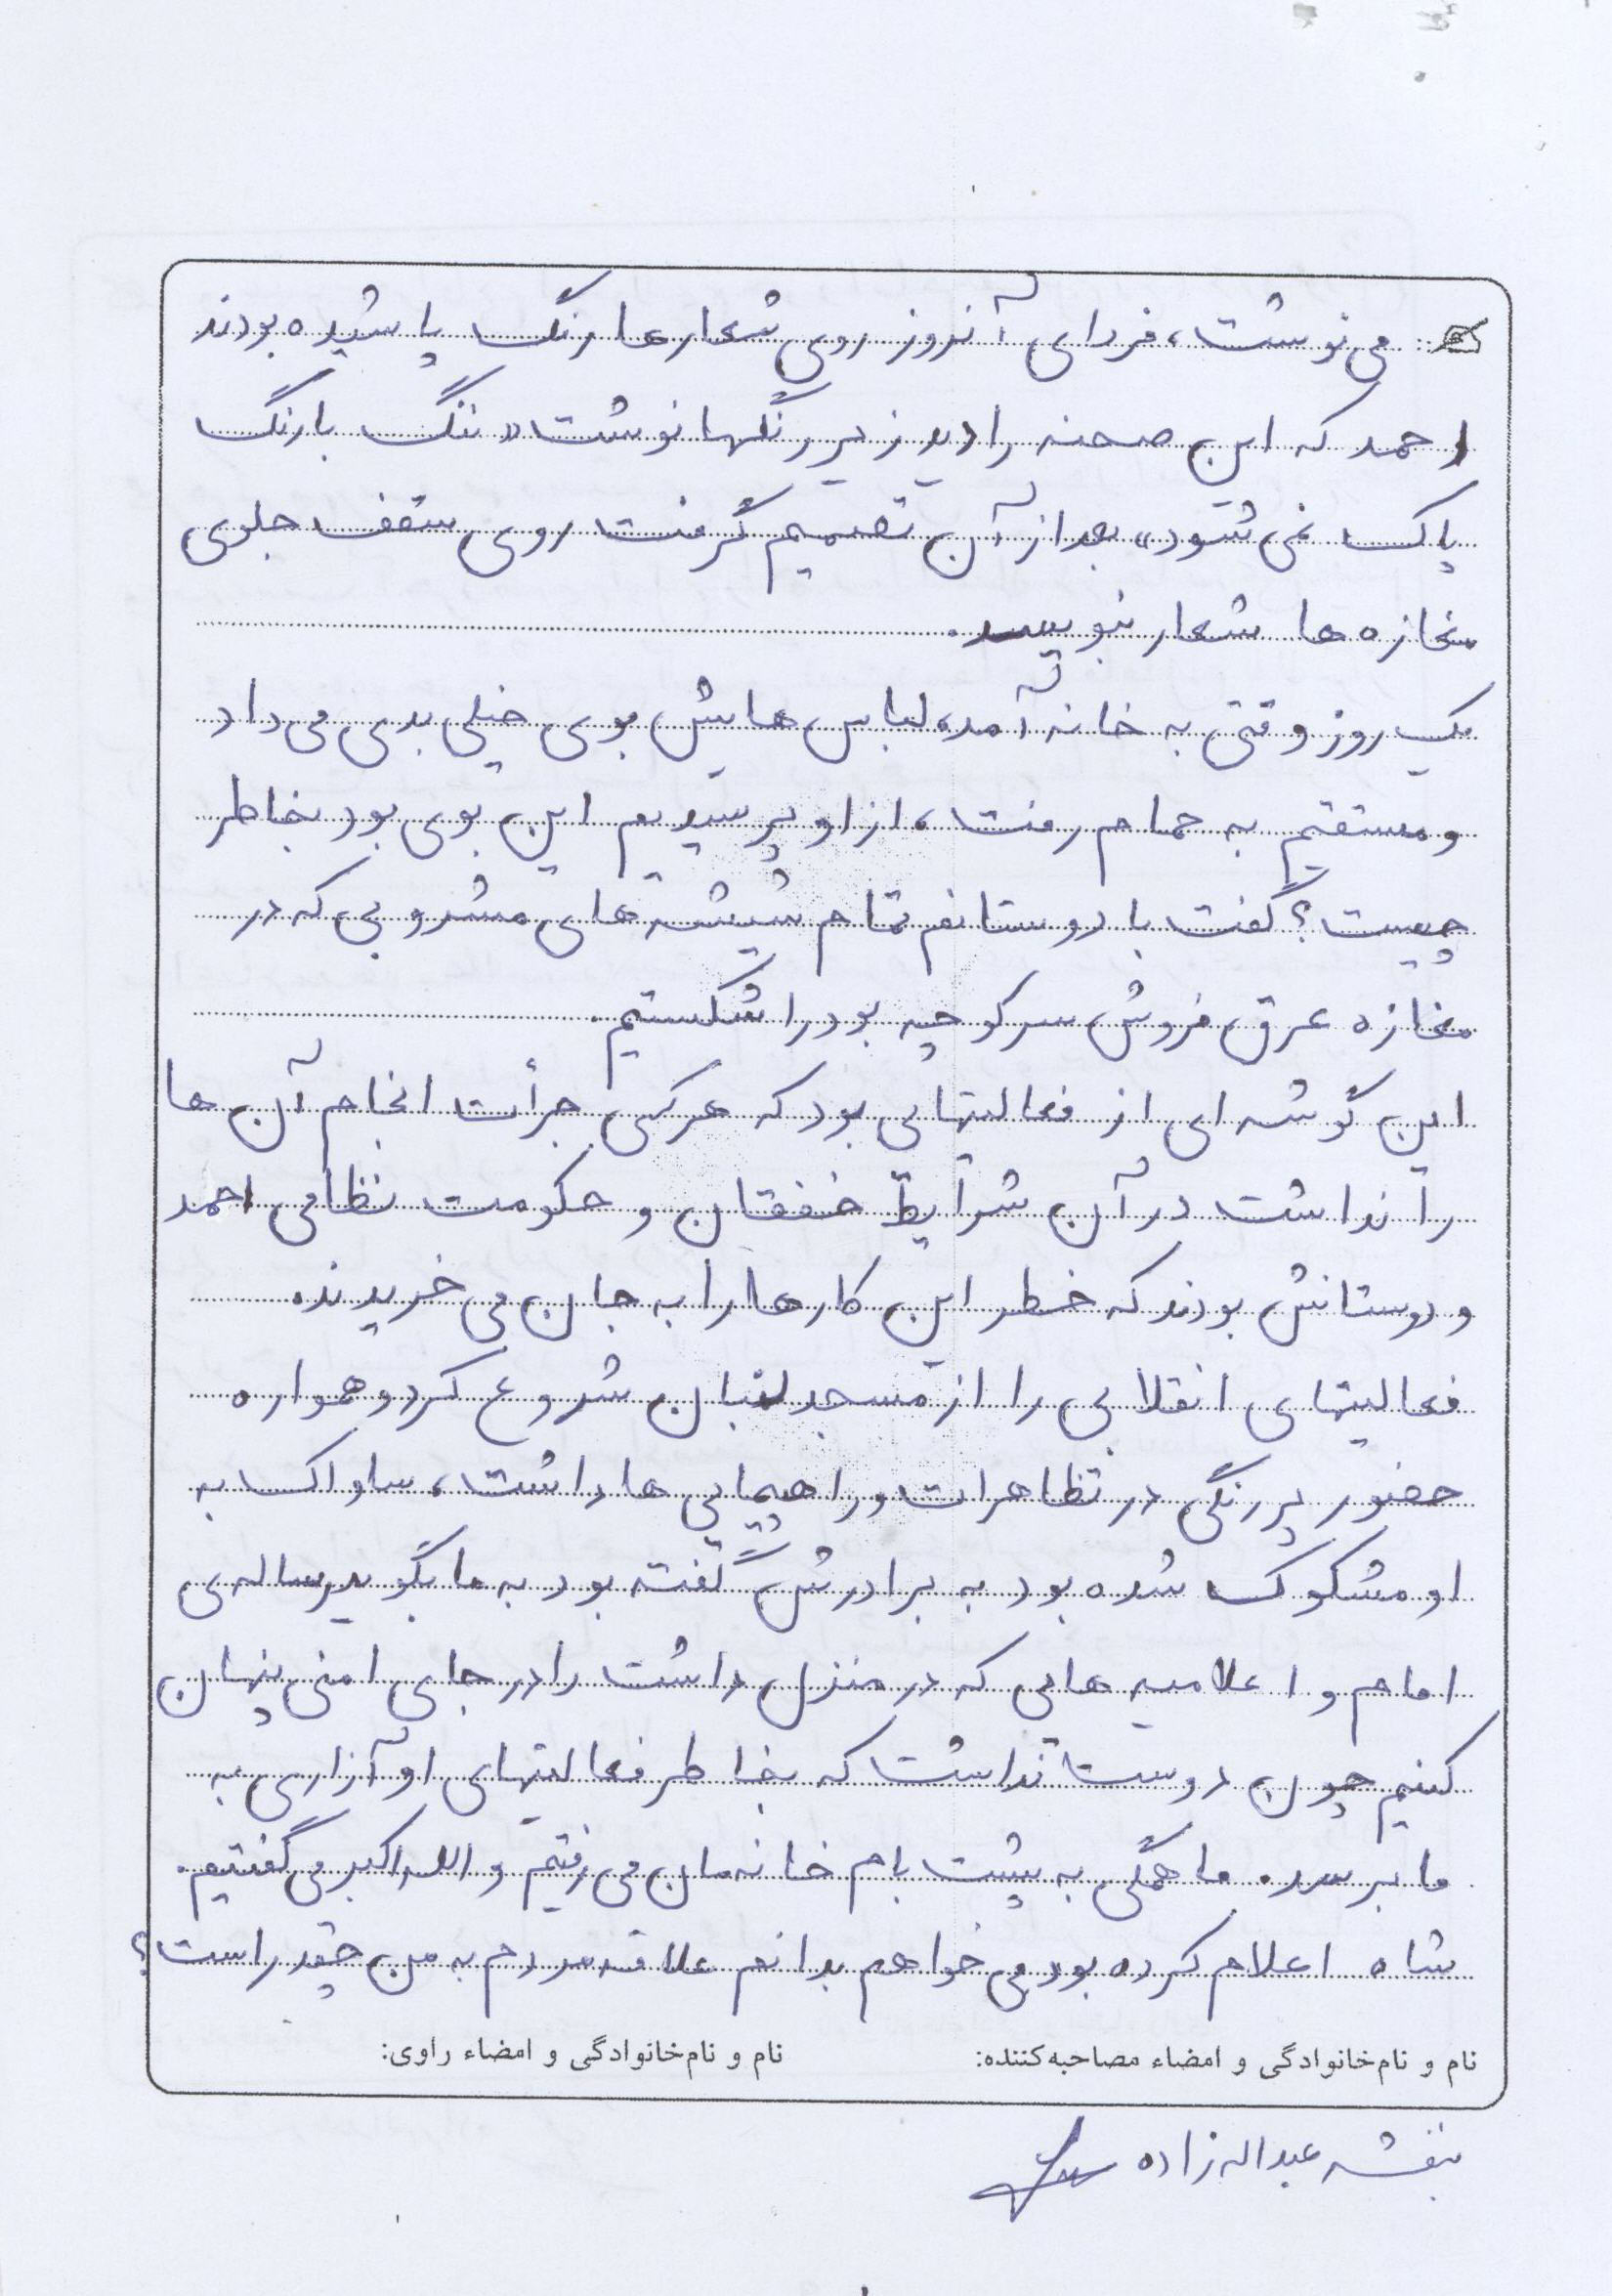 می نوشت، فردای آنروز روی شعارها رنگ پاشیده بودند
احمد که این صحنه را دید زیر رنگها نوشت «ننگ با رنگ
پاک نمی شود» بعد از آن تصمیم گرفت روی سقف جلوی
مغازه ها شعار بنویسد.
یک روز وقتی به خانه آمد، لباس هایش بوی خیلی بدی می داد
و مستقیم به حمام رفت، از او پرسیدیم این بوی بود بخاطر
چیست؟ گفت با دوستانم تمام شیشه های مشروبی که در
مغازه عرق فروش سر کوچه بود را شکستیم.
این گوشه ای از فعالیتهایی بود که هرکسی جرأت انجام آن ها
را نداشت در آن شرایط خفقان و حکومت نظامی احمد
و دوستانش بودند که خطر این کارها را به جان می خریدند.
فعالیتهای انقلابی را از مسجد لنبان شروع کرد و همواره
حضور پررنگی در تظاهرات و راهپیمایی ها داشت، ساواک به
او مشکوک شده بود به برادرش گفته بود به ما بگوید رساله ی
امام و اعلامیه هایی که در منزل داشت را در جای امنی پنهان
کنیم چون دوست نداشت که بخاطر فعالیتهای او آزاری به
ما برسد. ما همگی به پشت بام خانه مان می رفتیم و الله اکبر می گفتیم.
شاه اعلام کرده بود می خواهم بدانم علاقه مردم به من چقدر است؟
نام و نام خانوادگی و امضاء مصاحبه کننده: نام و نام خانوادگی و امضاء راوی:
بنفشه عبداله زاده